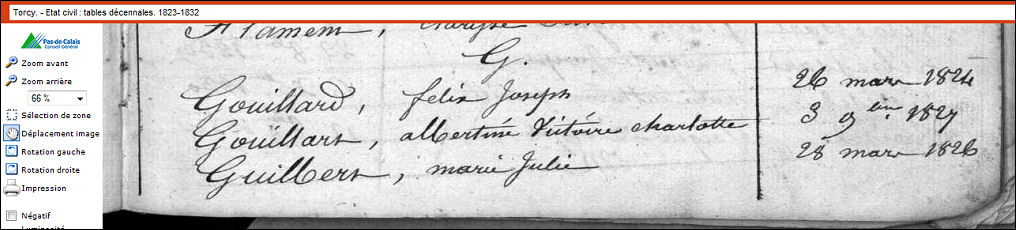 Torcy. - Etat civil : tables décennales. 1823-1832
Pas-de-Calais
Conseil Général
Zoom avant
Zoom arrière
66 %
Sélection de zone
Déplacement image
Rotation gauche
Rotation droite
Impression
Négatif
Luminosité
G.
Gouillard, felix Joseph 26 mars 1824
Gouillart, albertine Victoire charlotte 3 9bre 1827
Guilbert, marie Julie 28 mars 1826